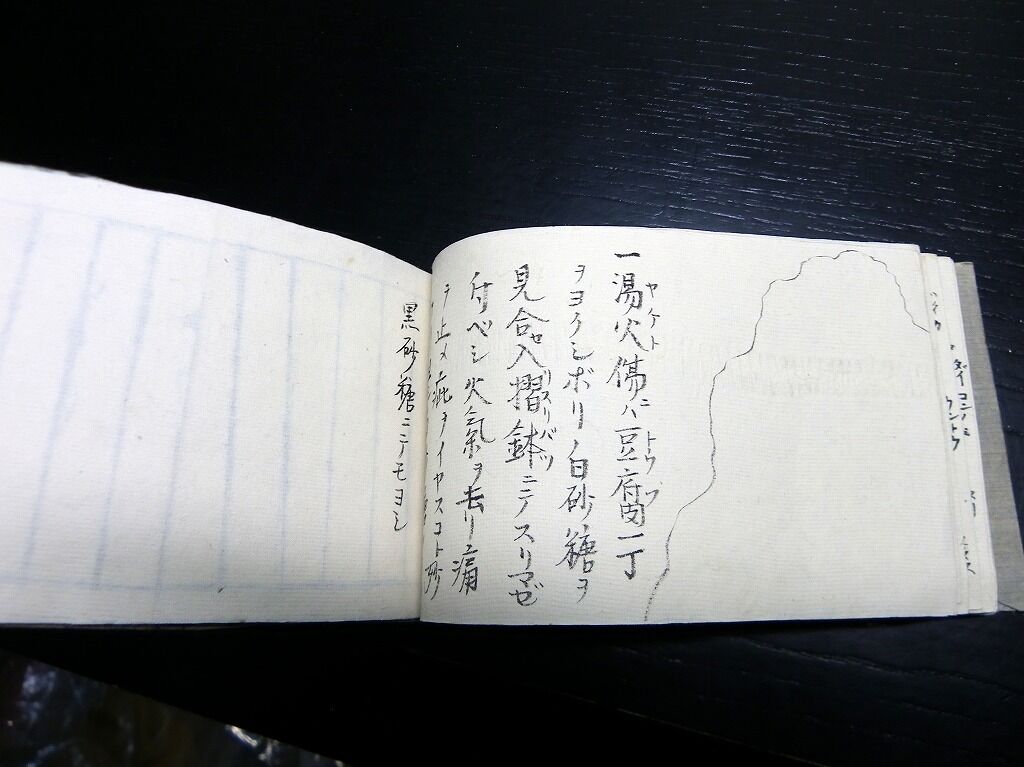 一湯火傷ニハ豆腐一丁
ヤケド
トウフ
ヲヨクシボリ白砂糖ヲ
見合セ入摺鉢ニテスリマゼ
スリバツ
付ベシ火氣ヲ去リ痛
ヲ止メ疵ヲイヤスコト妙
黒砂糖ニテモヨシ